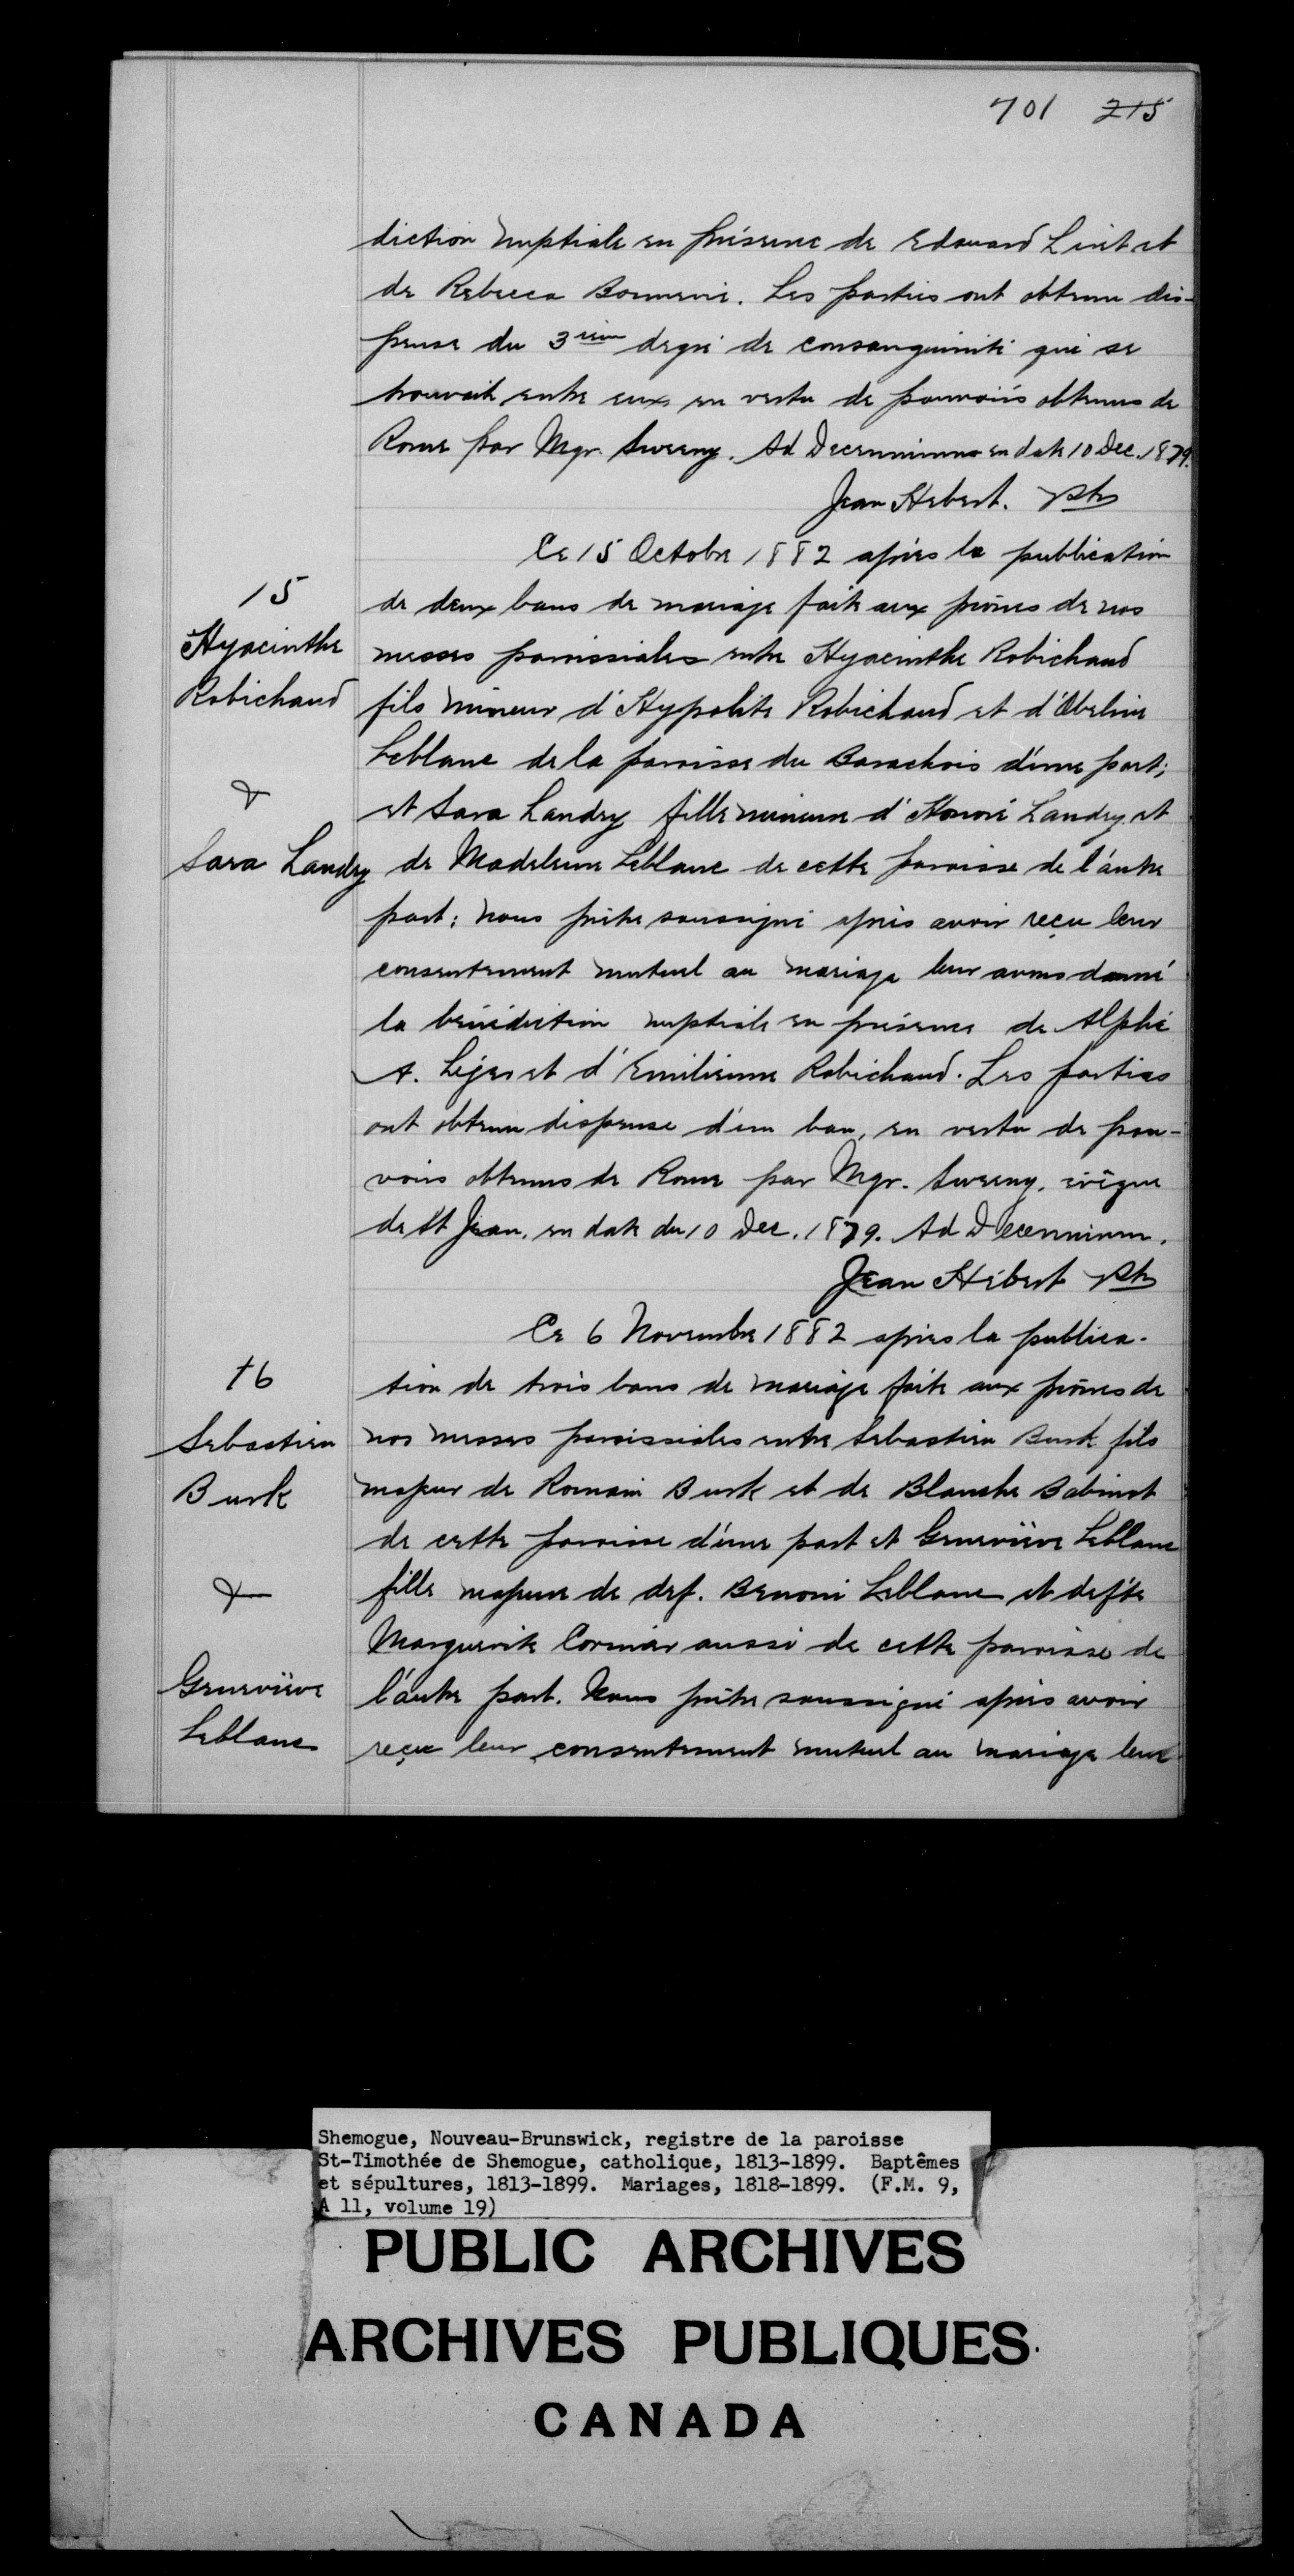 701 215
diction nuptiale en présence de Edouard Liret et
de Rebecca Bonnevie. Les parties ont obtenu dis-
pense du 3ième degré de consanguinité qui se
trouvait entre eux en vertu de pouvoirs obtenus de
Rome par Mgr. Sweeny. Ad Decennium en date 10 Dec. 1879.
Jean Hebert. Ptr
Ce 15 Octobre 1882 après la publication
15
de deux bans de mariage faite aux prônes de nos
Hyacinthe
messes paroissiales entre Hyacinthe Robichaud
Robichaud
fils mineur d'Hypolite Robichaud et d'Obeline
Leblanc de la paroisse du Barachois d'une part;
&
et Sara Landry fille mineure d'Honoré Landry et
Sara Landry
de Madeleine Leblanc de cette paroisse de l'autre
part; nous prêtre soussigné après avoir reçu leur
consentement mutuel au mariage leur avons donné
la bénédiction nuptiale en présence de Alphé
A. Léger et d'Emilienne Robichaud. Les parties
ont obtenu dispense d'un ban, en vertu de pou-
voirs obtenus de Rome par Mgr. Sweeny, évêque
de St Jean, en date du 10 Dec. 1879. Ad Decennium.
Jean Hébert Ptr
Ce 6 Novembre 1882 après la publica-
16
tion de trois bans de mariage faite aux prônes de
Sebastien
nos messes paroissiales entre Sebastien Burk fils
Burk
majeur de Romain Burk et de Blanche Babinot
de cette paroisse d'une part et Geneviève Leblanc
&
fille majeure de def. Benoni Leblanc et defte
Marguerite Cormier aussi de cette paroisse de
Geneviève
l'autre part. Nous prêtre soussigné après avoir
Leblanc
reçu leur consentement mutuel au mariage leur
Shemogue, Nouveau-Brunswick, registre de la paroisse
St-Timothée de Shemogue, catholique, 1813-1899. Baptêmes
et sépultures, 1813-1899. Mariages, 1818-1899. (F.M. 9,
A 11, volume 19)
PUBLIC ARCHIVES
ARCHIVES PUBLIQUES
CANADA